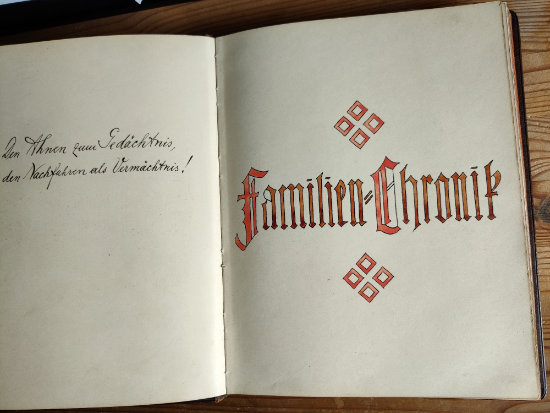 Den Ahnen zum Gedächtnis,
den Nachfahren als Vermächtnis!
Familien-Chronik